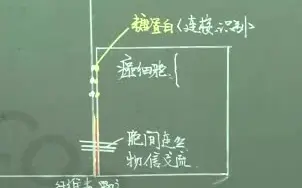 糖蛋白(连接.识别)
癌细胞{
胞间连丝
物.信交流